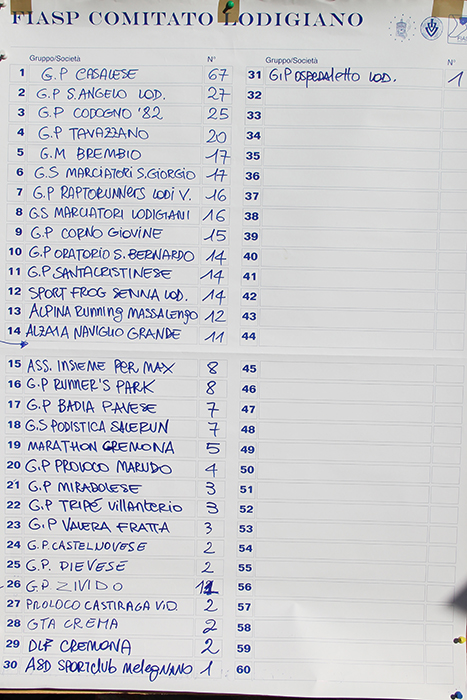 FIASP COMITATO LODIGIANO
Gruppo/Società N°
1 G.P CASALESE 67
2 G.P S.ANGELO LOD. 27
3 G.P CODOGNO '82 25
4 G.P TAVAZZANO 20
5 G.M BREMBIO 17
6 G.S MARCIATORI S.GIORGIO 17
7 G.P RAPTORUNNERS LODI V. 16
8 GS MARCIATORI LODIGIANI 16
9 G.P CORNO GIOVINE 15
10 G.P ORATORIO S. BERNARDO 14
11 G.P SANTACRISTINESE 14
12 SPORT FROG SENNA LOD. 14
13 ALPINA RUNNING MASSALENGO 12
14 ALZAIA NAVIGLIO GRANDE 11
15 ASS. INSIEME PER MAX 8
16 G.P RUNNER'S PARK 8
17 G.P BADIA PAVESE 7
18 G.S PODISTICA SALERUN 7
19 MARATHON CREMONA 5
20 G.P PROLOCO MARUDO 4
21 G.P MIRADOLESE 3
22 G.P TRIPÉ Villanterio 3
23 G.P VALERA FRATTA 3
24 G.P. CASTELNOVESE 2
25 G.P. DIEVESE 2
26 G.P ZIVIDO
27 PROLOCO CASTIRAGA VID. 2
28 GTA CREMA 2
29 DLF CREMONA 2
30 ASD SPORTclub melegnano 1
Gruppo/Società N°
31 G.P ospedaletto LOD. 1
32
33
34
35
36
37
38
39
40
41
42
43
44
45
46
47
48
49
50
51
52
53
54
55
56
57
58
59
60